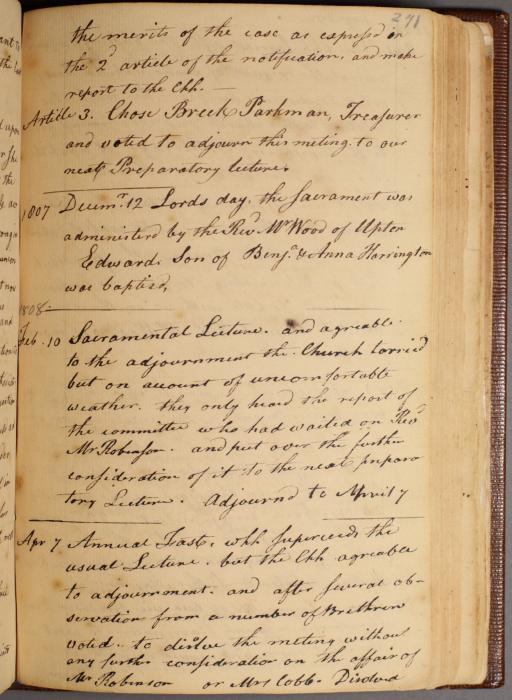 271
the merits of the case as expres'd in
the 2d article of the notification, and make
report to the Chh. —
Article 3. Chose Breck Parkman, Treasurer
and voted to adjourn this meting to our
next Preparatory lecture.
1807 Decemr. 12 Lords day, the Sacrament was
administerd by the Revd Mr Wood of Upton
Edward. Son of Benja. & Anna Harrington
was baptisd,
1808
Feb. 10 Sacramental Lecture. and agreable
to the adjournment the Church tarried
but on account of uncomfortable
weather. they only heard the report of
the committee who had waited on Revd
Mr Robinson. and put over the further
consideration of it to the next prepara
tory Lecture. Adjournd to April 7
Apr 7 Annual Fast, whh superceeds the
usual Lecture. but the Chh agreable
to adjournment. and after several ob-
servation from a number of Brethren
voted. to disolve the meting without
any further consideration on the affair of
Mr Robinson or Mrs Cobb. Disolved